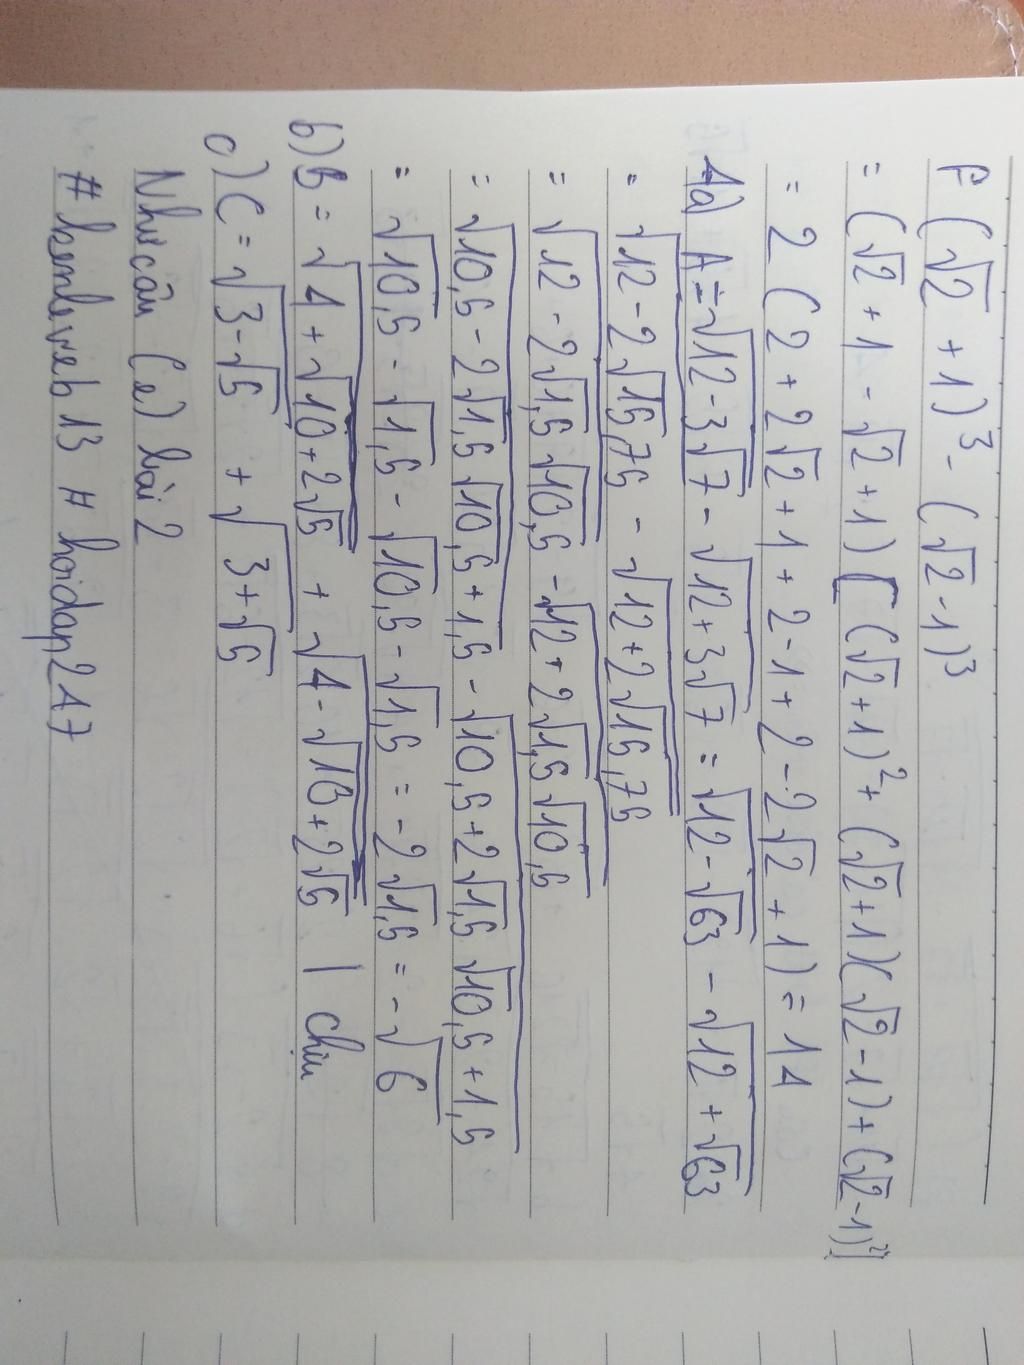 F (√2 + 1)³ - (√2 - 1)³
= (√2 + 1 - √2 + 1) [(√2 + 1)² + (√2 + 1)(√2 - 1) + (√2 - 1)²]
= 2 (2 + 2√2 + 1 + 2 - 1 + 2 - 2√2 + 1) = 14
1a) A = √(12 - 3√7) - √(12 + 3√7) = √(12 - √63) - √(12 + √63)
= √(12 - 2√15,75) - √(12 + 2√15,75)
= √(12 - 2√1,5 √10,5) - √(12 + 2√1,5 √10,5)
= √(10,5 - 2√1,5 √10,5 + 1,5) - √(10,5 + 2√1,5 √10,5 + 1,5)
= √10,5 - √1,5 - √10,5 - √1,5 = -2√1,5 = -√6
b) B = √(4 + √(10 + 2√5)) + √(4 - √(10 + 2√5)) | chịu
c) C = √(3 - √5) + √(3 + √5)
Như câu (e) bài 2
# kenleveb13 # hoidap247